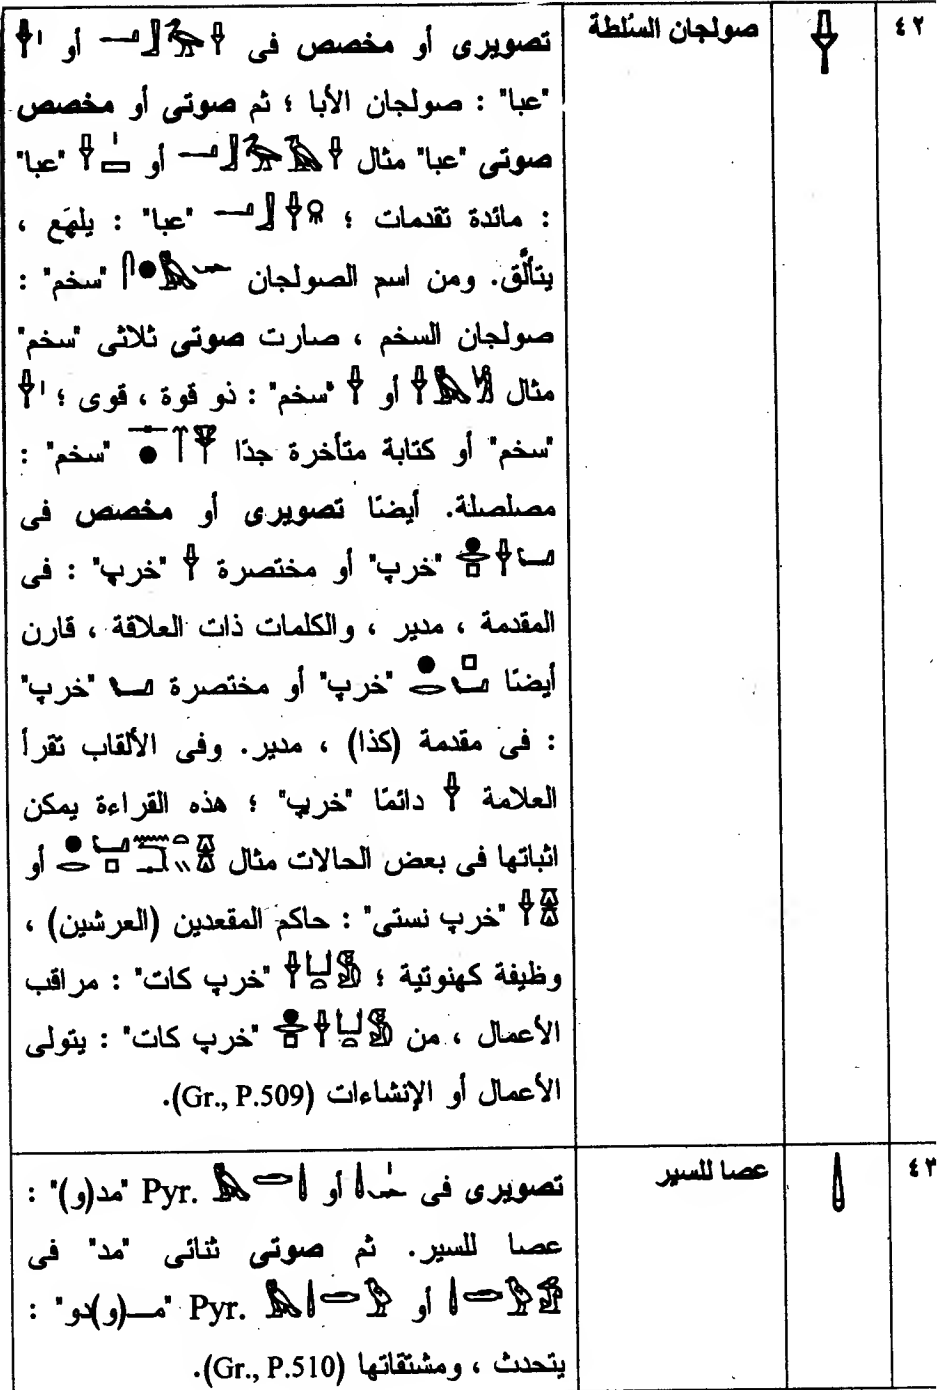 ٤٢ 𓌂 صولجان السُلطة تصويرى أو مخصص فى 𓂝𓃀𓅭𓌂 أو 𓌂𓏤
"عبا" : صولجان الأبا ؛ ثم صوتى أو مخصص
صوتى "عبا" مثال 𓂝𓃀𓅭𓄿𓌂 أو "عبا"
: مائدة تقدمات ؛ 𓂝𓃀𓌂𓇶 "عبا" : يلهَع ،
يتألَّق. ومن اسم الصولجان "سخم" :
صولجان السخم ، صارت صوتى ثلاثى "سخم"
مثال أو 𓌂 "سخم" : ذو قوة ، قوى ؛ 𓌂𓏤
"سخم" أو كتابة متأخرة جدًا "سخم" :
مصلصلة. أيضًا تصويرى أو مخصص فى
"خرپ" أو مختصرة 𓌂 "خرپ" : فى
المقدمة ، مدير ، والكلمات ذات العلاقة ، قارن
أيضًا "خرپ" أو مختصرة "خرپ"
: فى مقدمة (كذا) ، مدير. وفى الألقاب تقرأ
العلامة 𓌂 دائمًا "خرپ" ؛ هذه القراءة يمكن
اثباتها فى بعض الحالات مثال أو
"خرپ نستى" : حاكم المقعدين (العرشين) ،
وظيفة كهنوتية ؛ "خرپ كات" : مراقب
الأعمال ، من "خرپ كات" : يتولى
الأعمال أو الإنشاءات (Gr., P.509).
٤٣ 𓌃 عصا للسير تصويرى فى أو Pyr. "مد(و)" :
عصا للسير. ثم صوتى ثنائى "مد" فى
أو Pyr. "مـ(و)دو" :
يتحدث ، ومشتقاتها (Gr., P.510).